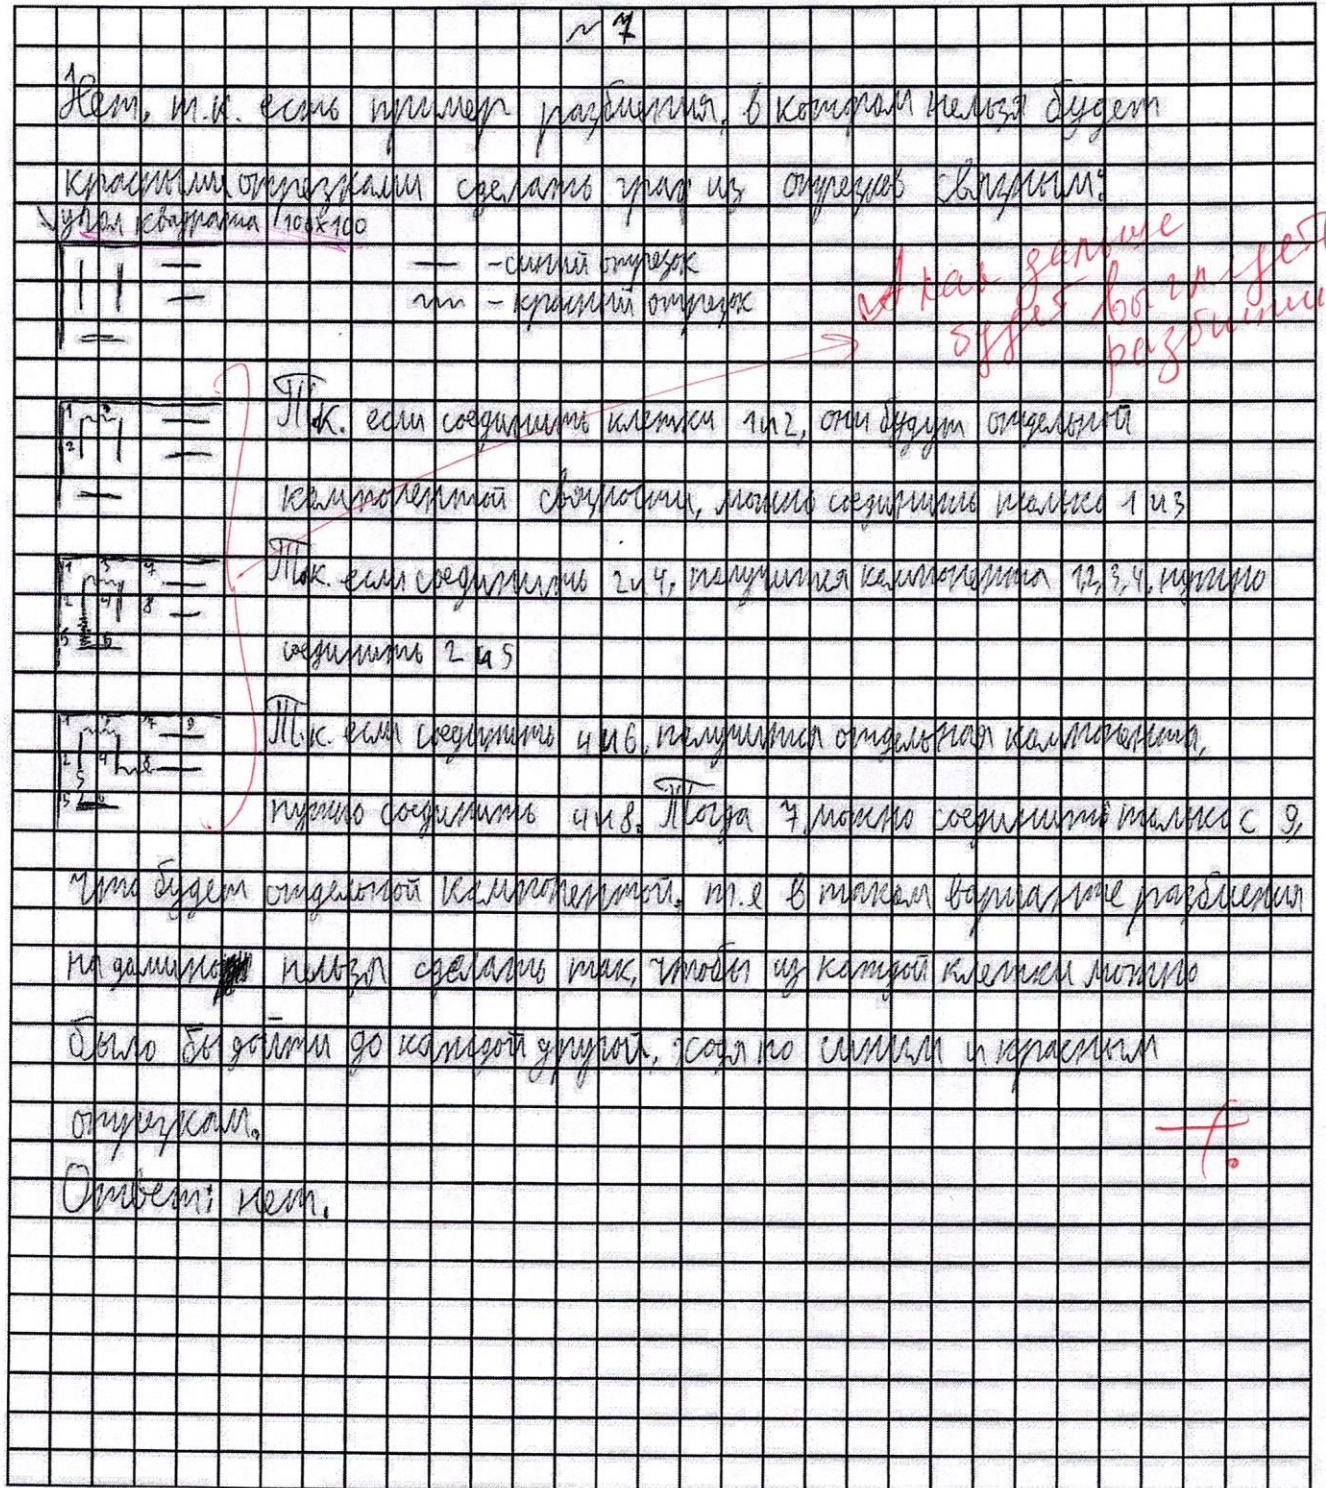 ~ 7
Нет, т.к. есть пример разбиения, в котором нельзя будет
красными отрезками сделать граф из отрезков связным:
угол квадрата 100×100
— - синий отрезок
~~ - красный отрезок
А как дальше
будет выглядеть
разбиение
1 3
2
Т.к. если соединить клетки 1 и 2, они будут отдельной
компонентой связности, можно соединить только 1 и 3
1 3 7
2 4 8
5 6
Т.к. если соединить 2 и 4, получится компонента 1,2,3,4, нужно
соединить 2 и 5
1 3 7 9
2 4 8
5 6
Т.к. если соединить 4 и 6, получится отдельная компонента,
нужно соединить 4 и 8. Тогда 7 можно соединить только с 9,
что будет отдельной компонентой, т.е в таком варианте разбиения
на домино нельзя сделать так, чтобы из каждой клетки можно
было бы дойти до каждой другой, ходя по синим и красным
отрезкам.
Ответ: нет.